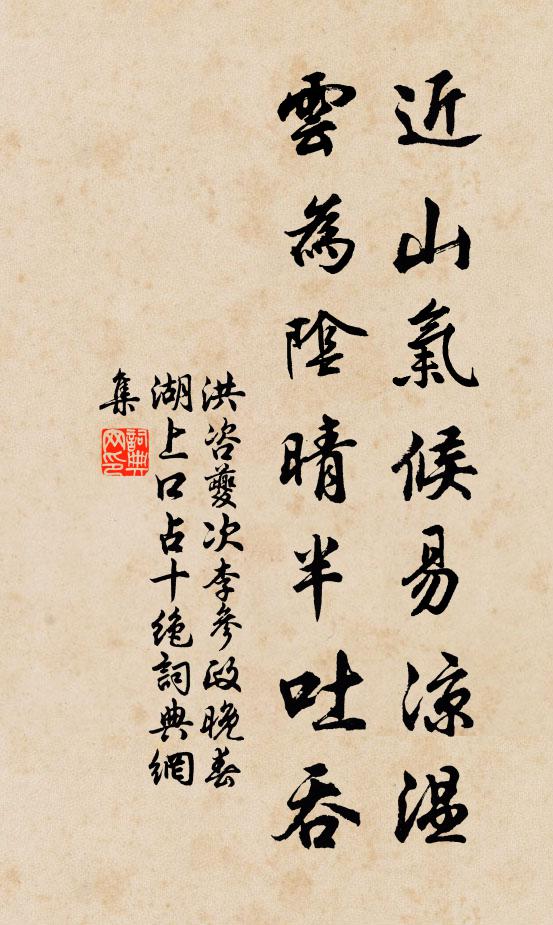 近山氣候易涼温
雲為陰晴半吐吞
洪咨夔次李參政晚春
湖上口占十絶詞典網
集
詞典
网印